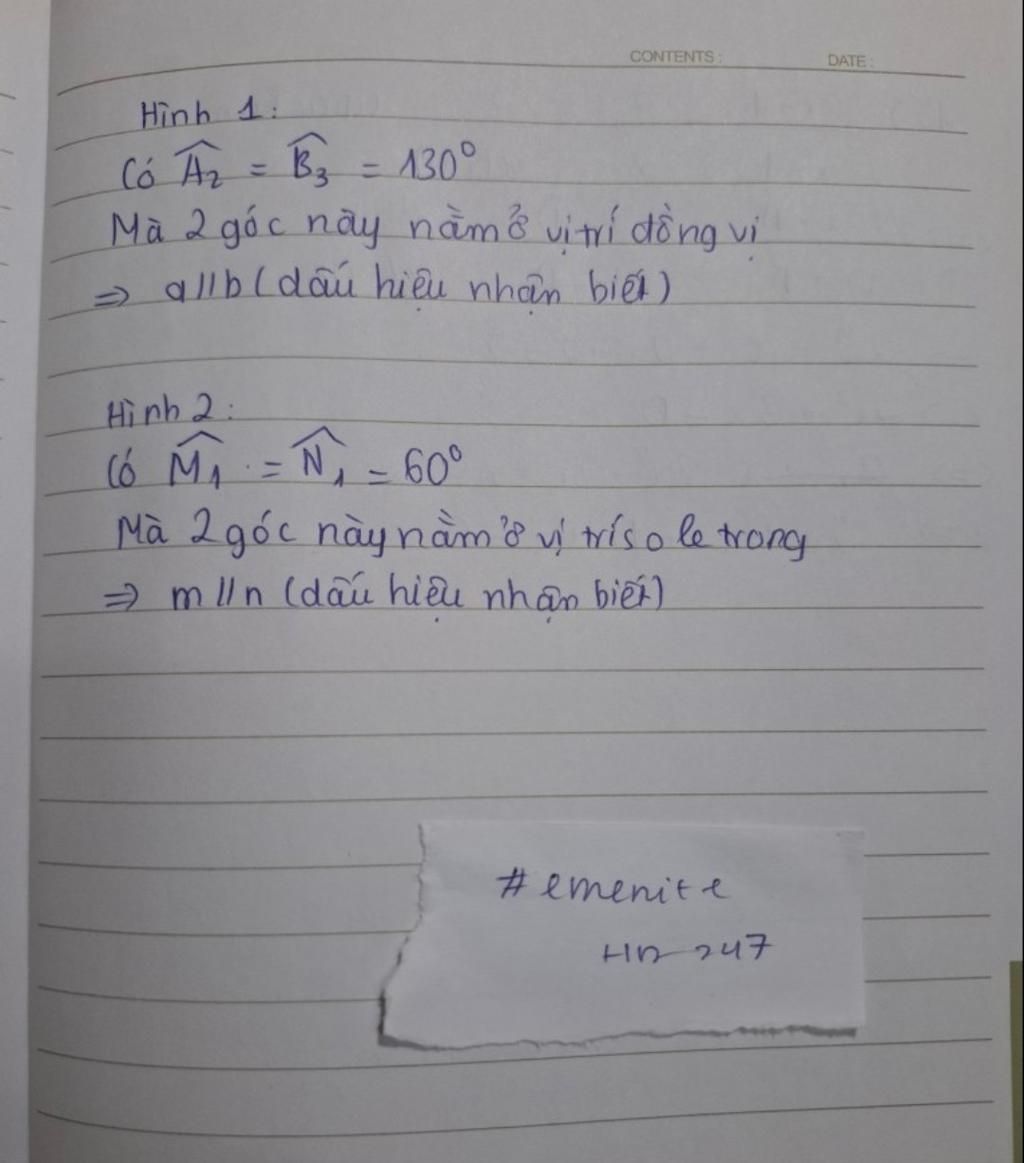 CONTENTS : DATE :
Hình 1:
Có Â₂ = B̂₃ = 130°
Mà 2 góc này nằm ở vị trí đồng vị
⇒ a//b (dấu hiệu nhận biết)
Hình 2:
Có M̂₁ = N̂₁ = 60°
Mà 2 góc này nằm ở vị trí so le trong
⇒ m//n (dấu hiệu nhận biết)
# emenite
HD 247